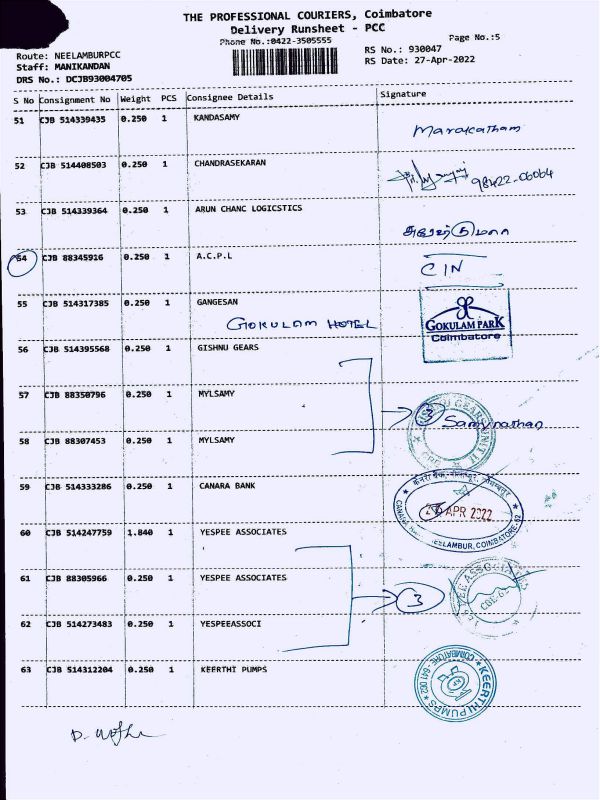 THE PROFESSIONAL COURIERS, Coimbatore
Delivery Runsheet - PCC
Phone No.:0422-3505555
Page No.:5
Route: NEELAMBURPCC
RS No.: 930047
Staff: MANIKANDAN
RS Date: 27-Apr-2022
DRS No.: DCJB93004705
S No Consignment No Weight PCS Consignee Details Signature
51 CJB 514339435 0.250 1 KANDASAMY
Marakatham
52 CJB 514408503 0.250 1 CHANDRASEKARAN
98422-06064
53 CJB 514339364 0.250 1 ARUN CHANC LOGICSTICS
54 CJB 88345916 0.250 1 A.C.P.L
CIN
55 CJB 514317385 0.250 1 GANGESAN
GOKULAM HOTEL
GOKULAM PARK
Coimbatore
56 CJB 514395568 0.250 1 GISHNU GEARS
57 CJB 88350796 0.250 1 MYLSAMY
3 Samynathan
58 CJB 88307453 0.250 1 MYLSAMY
59 CJB 514333286 0.250 1 CANARA BANK
APR 2022
NEELAMBUR, COIMBATORE-62
60 CJB 514247759 1.840 1 YESPEE ASSOCIATES
61 CJB 88305966 0.250 1 YESPEE ASSOCIATES
3
YES PEE ASSOCIATES
62 CJB 514273483 0.250 1 YESPEEASSOCI
63 CJB 514312204 0.250 1 KEERTHI PUMPS
KEERTHI PUMPS
COIMBATORE - 641 062